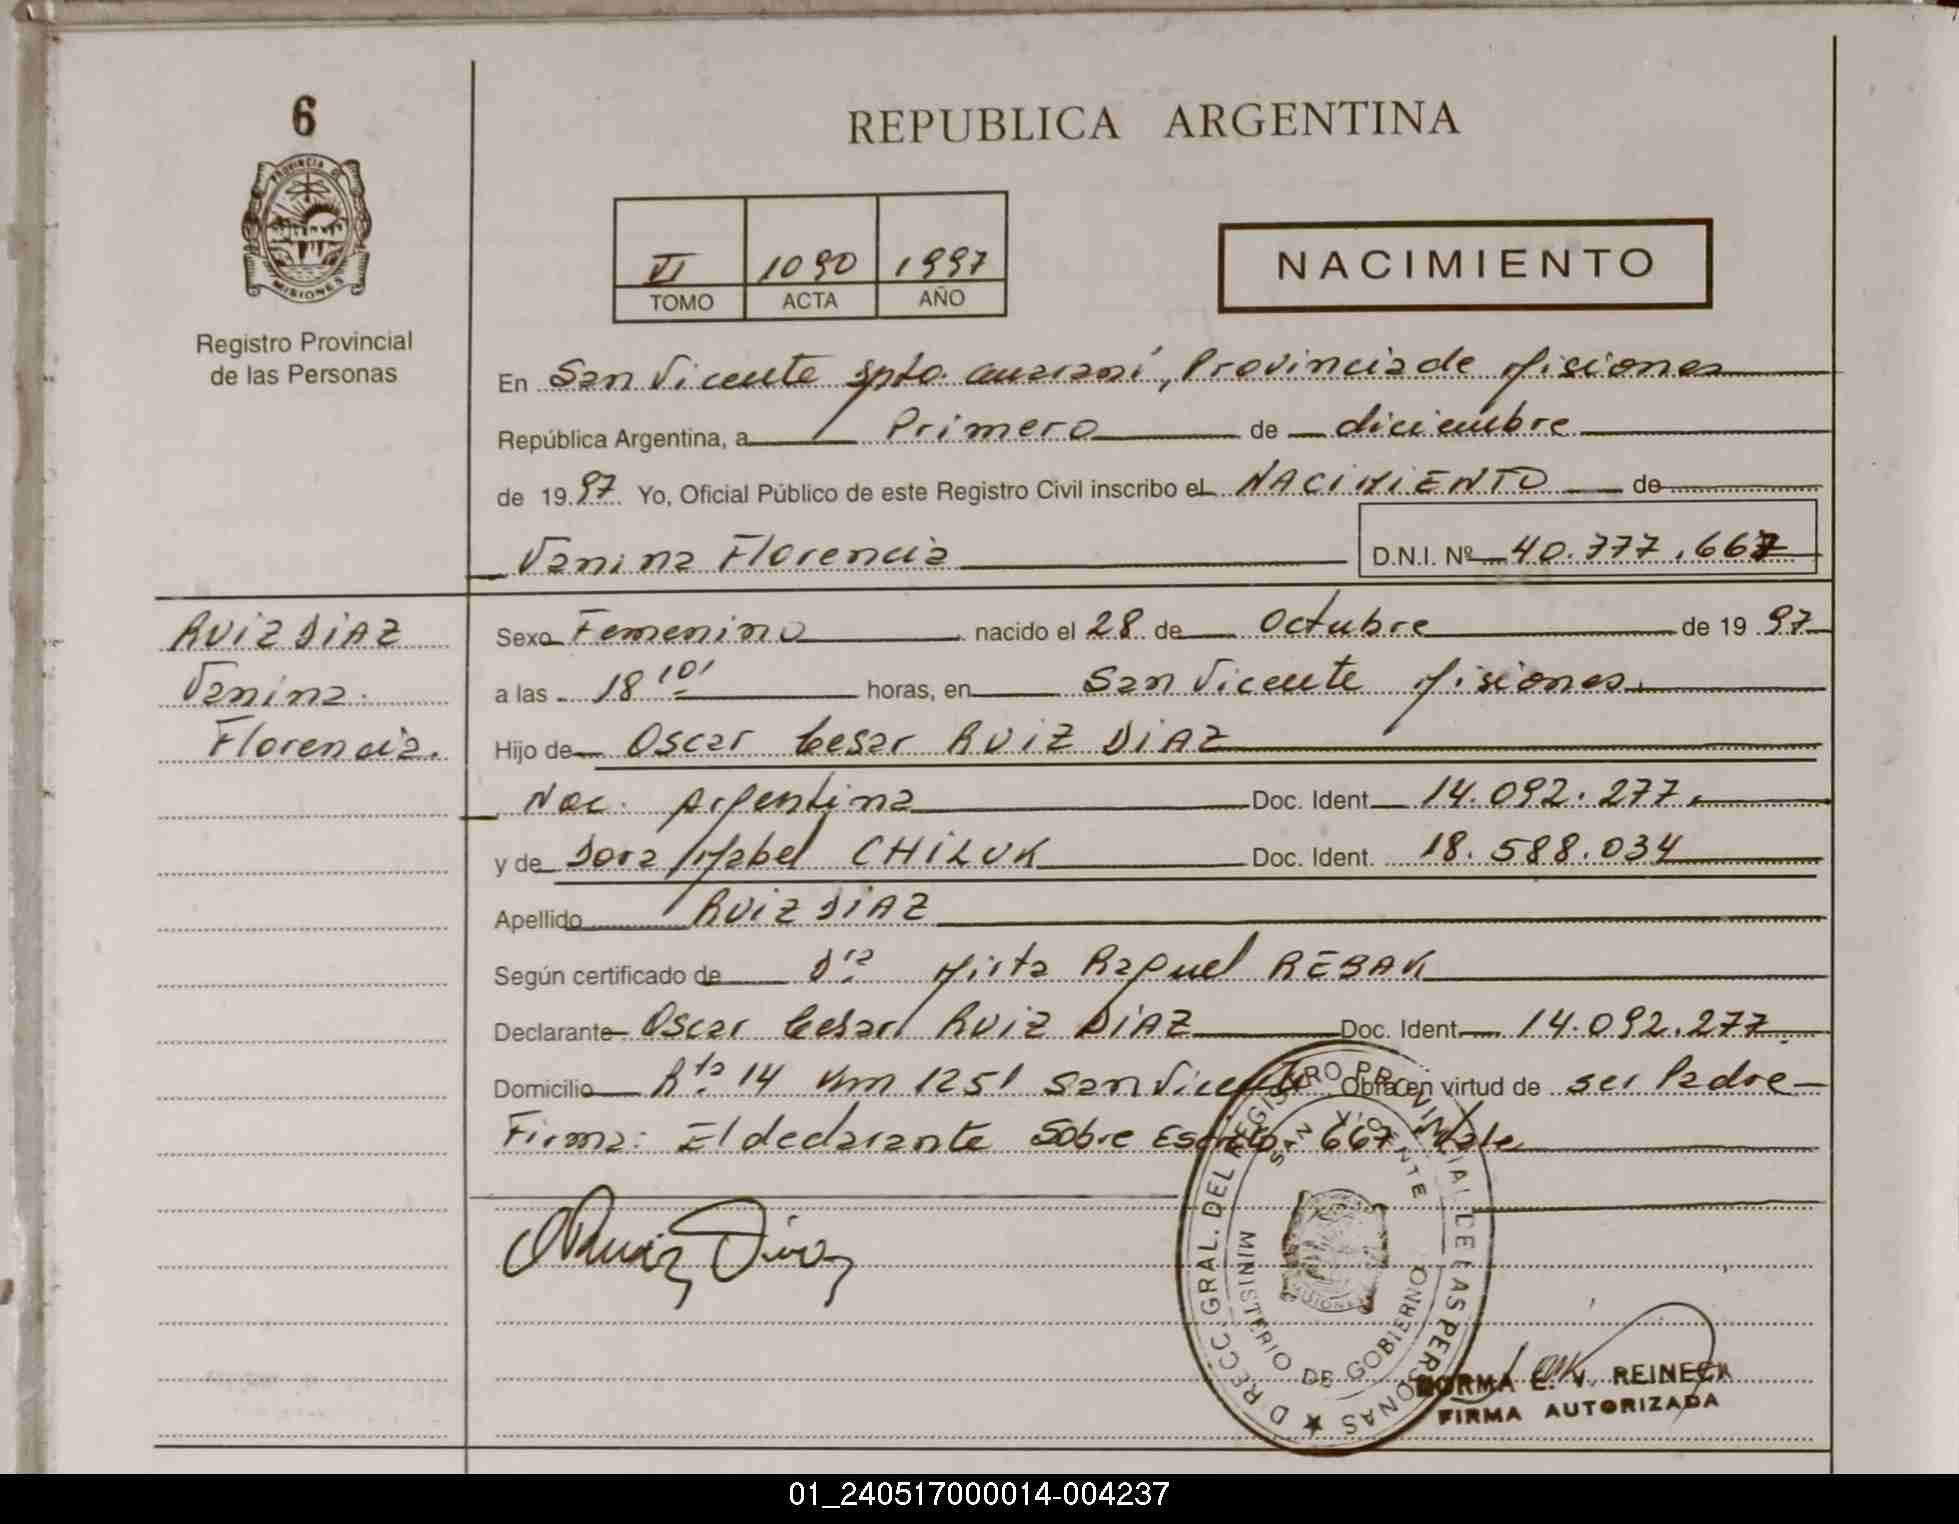 6
PROVINCIA DE
MISIONES
Registro Provincial
de las Personas
REPUBLICA ARGENTINA
VI 1090 1997
TOMO ACTA AÑO
NACIMIENTO
En San Vicente Dpto. Guaraní, Provincia de Misiones
República Argentina, a Primero de diciembre
de 19 97 Yo, Oficial Público de este Registro Civil inscribo el NACIMIENTO de
Vanina Florencia D.N.I. Nº 40.777.667
RUIZ DIAZ
Vanina
Florencia.
Sexo Femenino nacido el 28 de Octubre de 19 97
a las 18 10' horas, en San Vicente Misiones.
Hijo de Oscar Cesar RUIZ DIAZ
Nac. Argentina Doc. Ident. 14.092.277.
y de Dora Mabel CHILUK Doc. Ident. 18.588.034
Apellido RUIZ DIAZ
Según certificado de Dra Mirta Raquel REBAK
Declarante Oscar Cesar RUIZ DIAZ Doc. Ident. 14.092.277
Domicilio Rta 14 Km 1251 San Vicente Obra en virtud de ser Padre
Firma: El declarante Sobre Escrito 667 Vale
DIRECC. GRAL. DEL REGISTRO PROVINCIAL DE LAS PERSONAS
SAN VICENTE
MINISTERIO DE GOBIERNO
MISIONES
NORMA E. V. REINECK
FIRMA AUTORIZADA
01_240517000014-004237